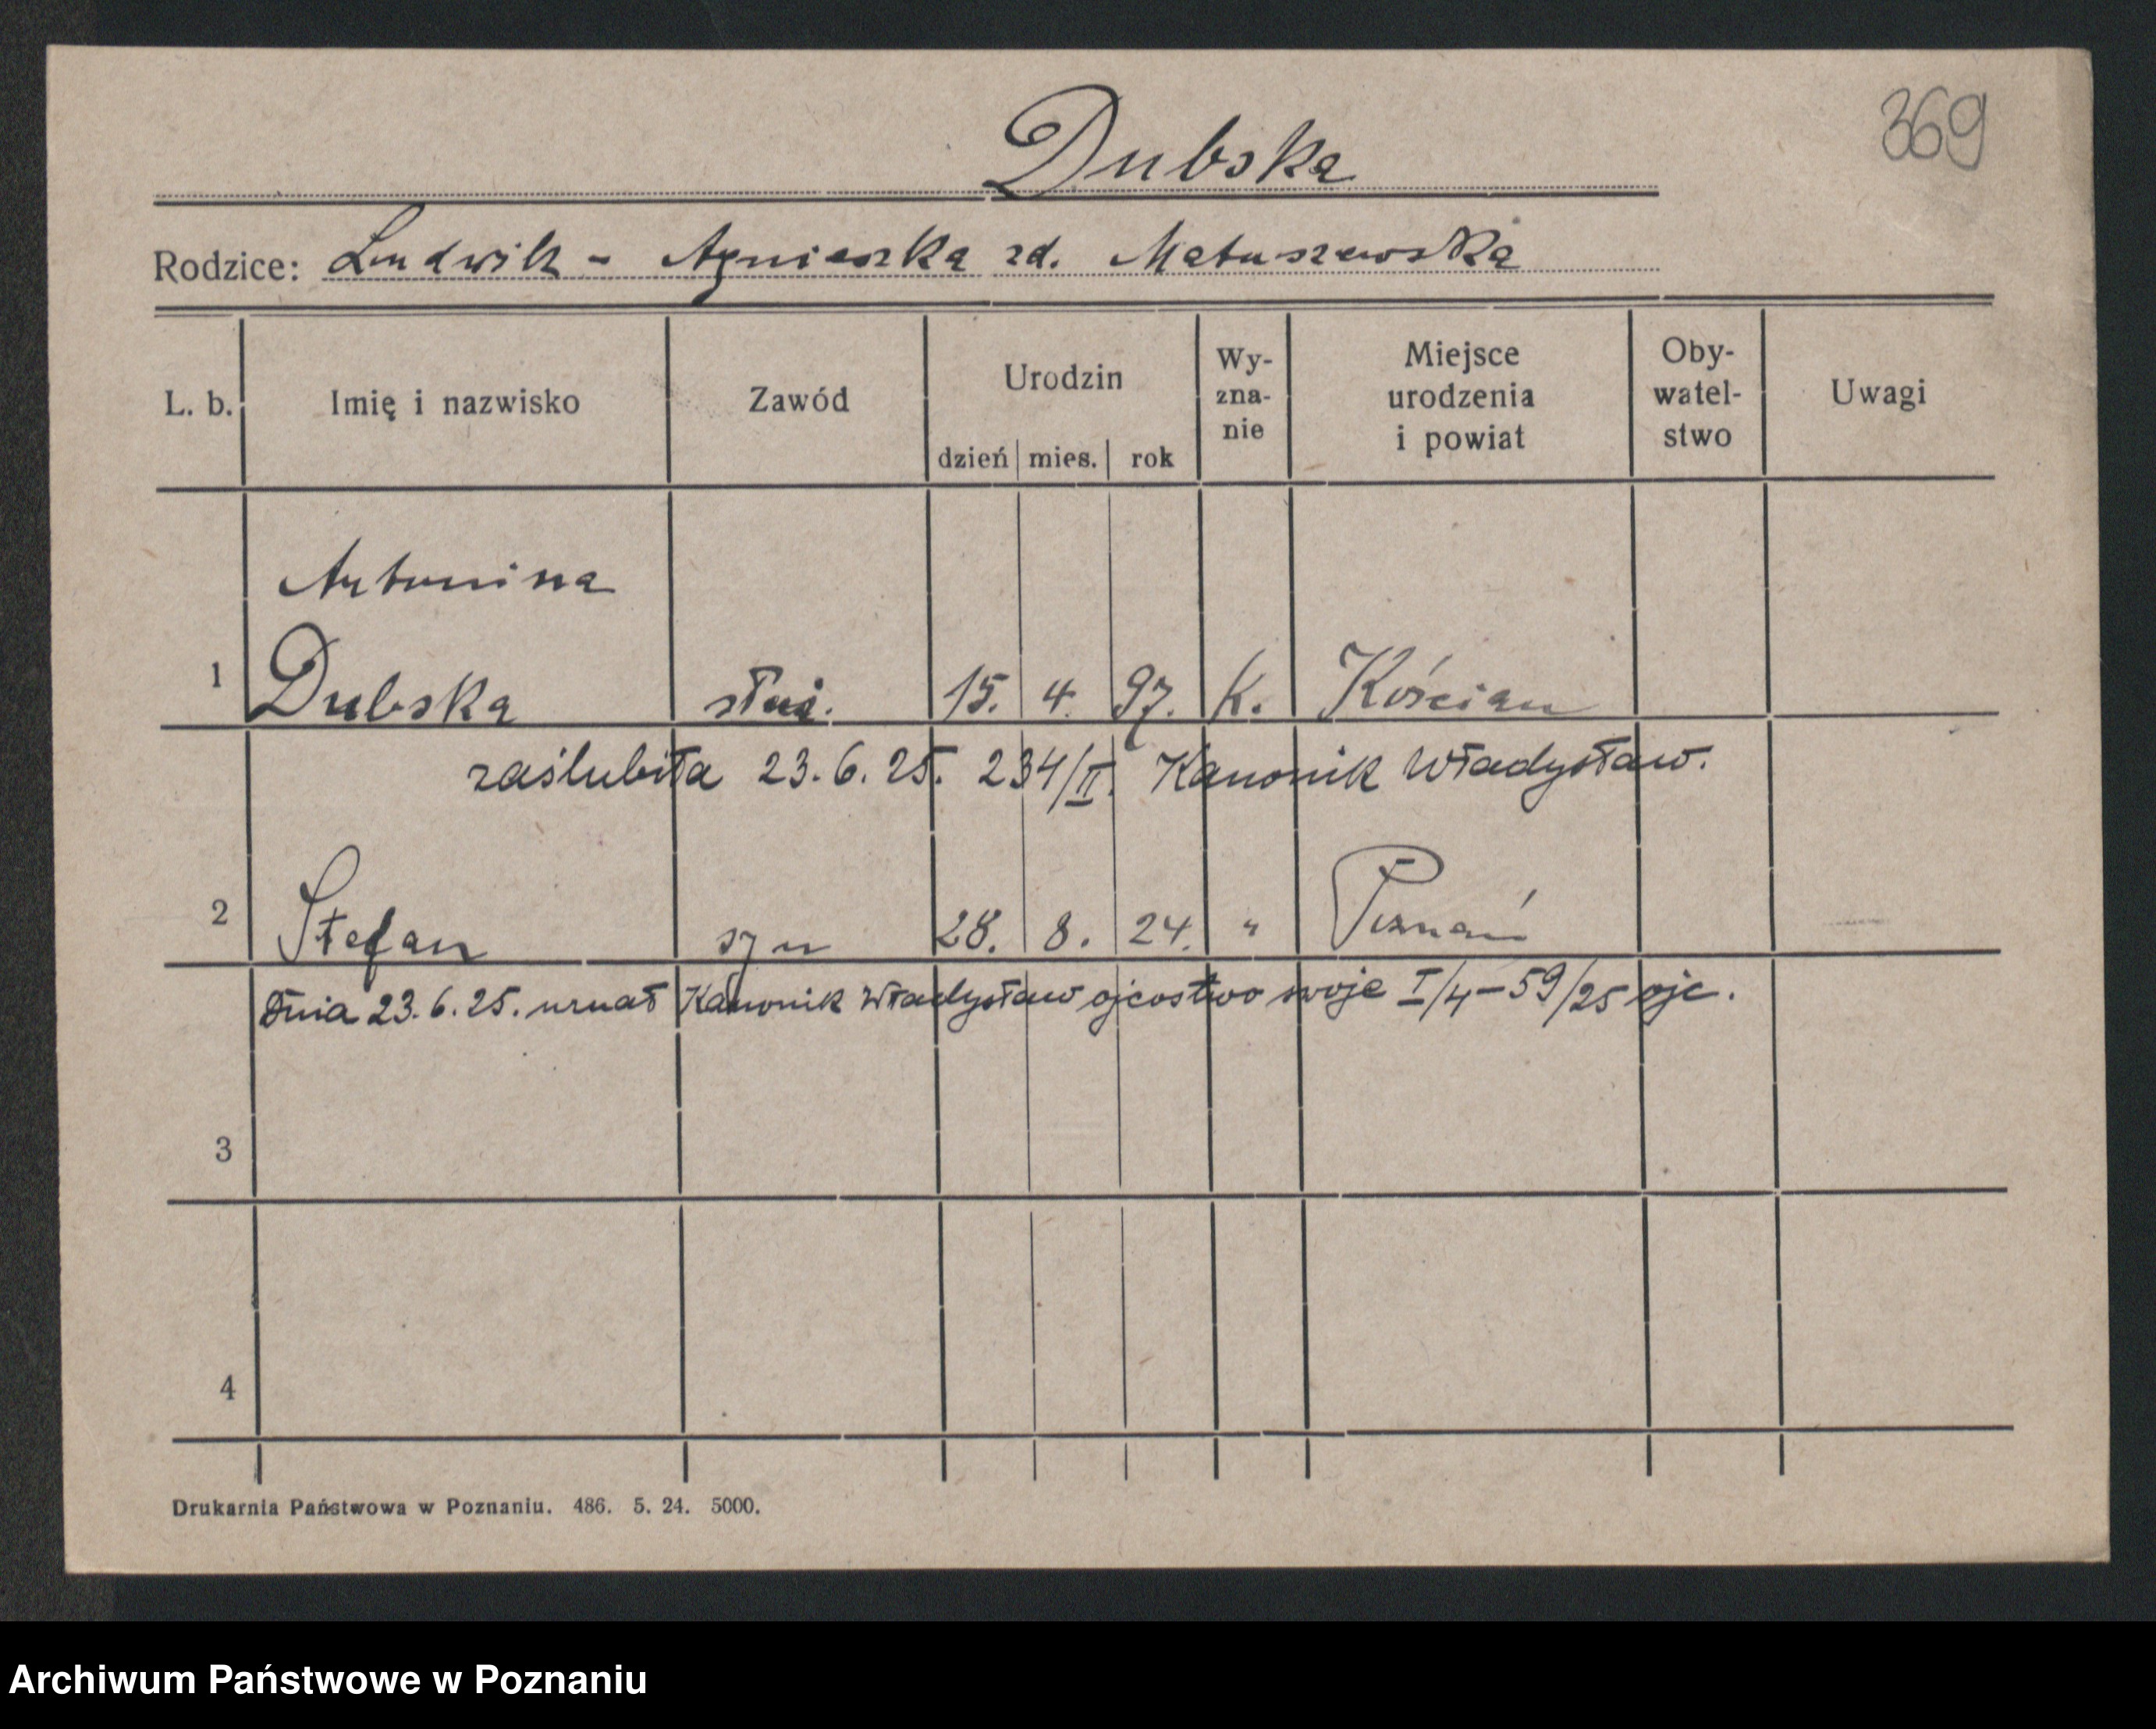 369
Dubska
Rodzice: Ludwik - Agnieszka zd. Matuszewska
L. b. Imię i nazwisko Zawód Urodzin dzień mies. rok Wy-zna-nie Miejsce urodzenia i powiat Oby-watel-stwo Uwagi
Antonina
1 Dubska służ. 15. 4. 97. K. Kościan
zaślubiła 23.6.25. 234/II. Kanonik Władysław.
2 Stefan syn 28. 8. 24. " Poznań
Dnia 23.6.25. uznał Kanonik Władysław ojcostwo swoje I/4-59/25 ojc.
3
4
Drukarnia Państwowa w Poznaniu. 486. 5. 24. 5000.
Archiwum Państwowe w Poznaniu